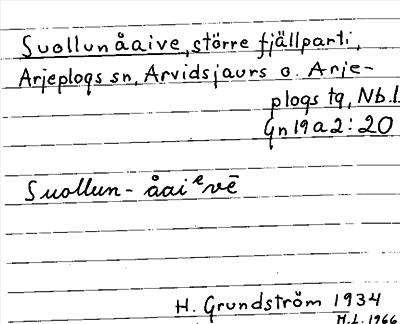 Suollunåaive, större fjällparti,
Arjeplogs sn, Arvidsjaurs o. Arje-
plogs tg, Nb.l.
Gn 19 a 2:20
Suollun- åaiᵉvē
H. Grundström 1934
H.L. 1966